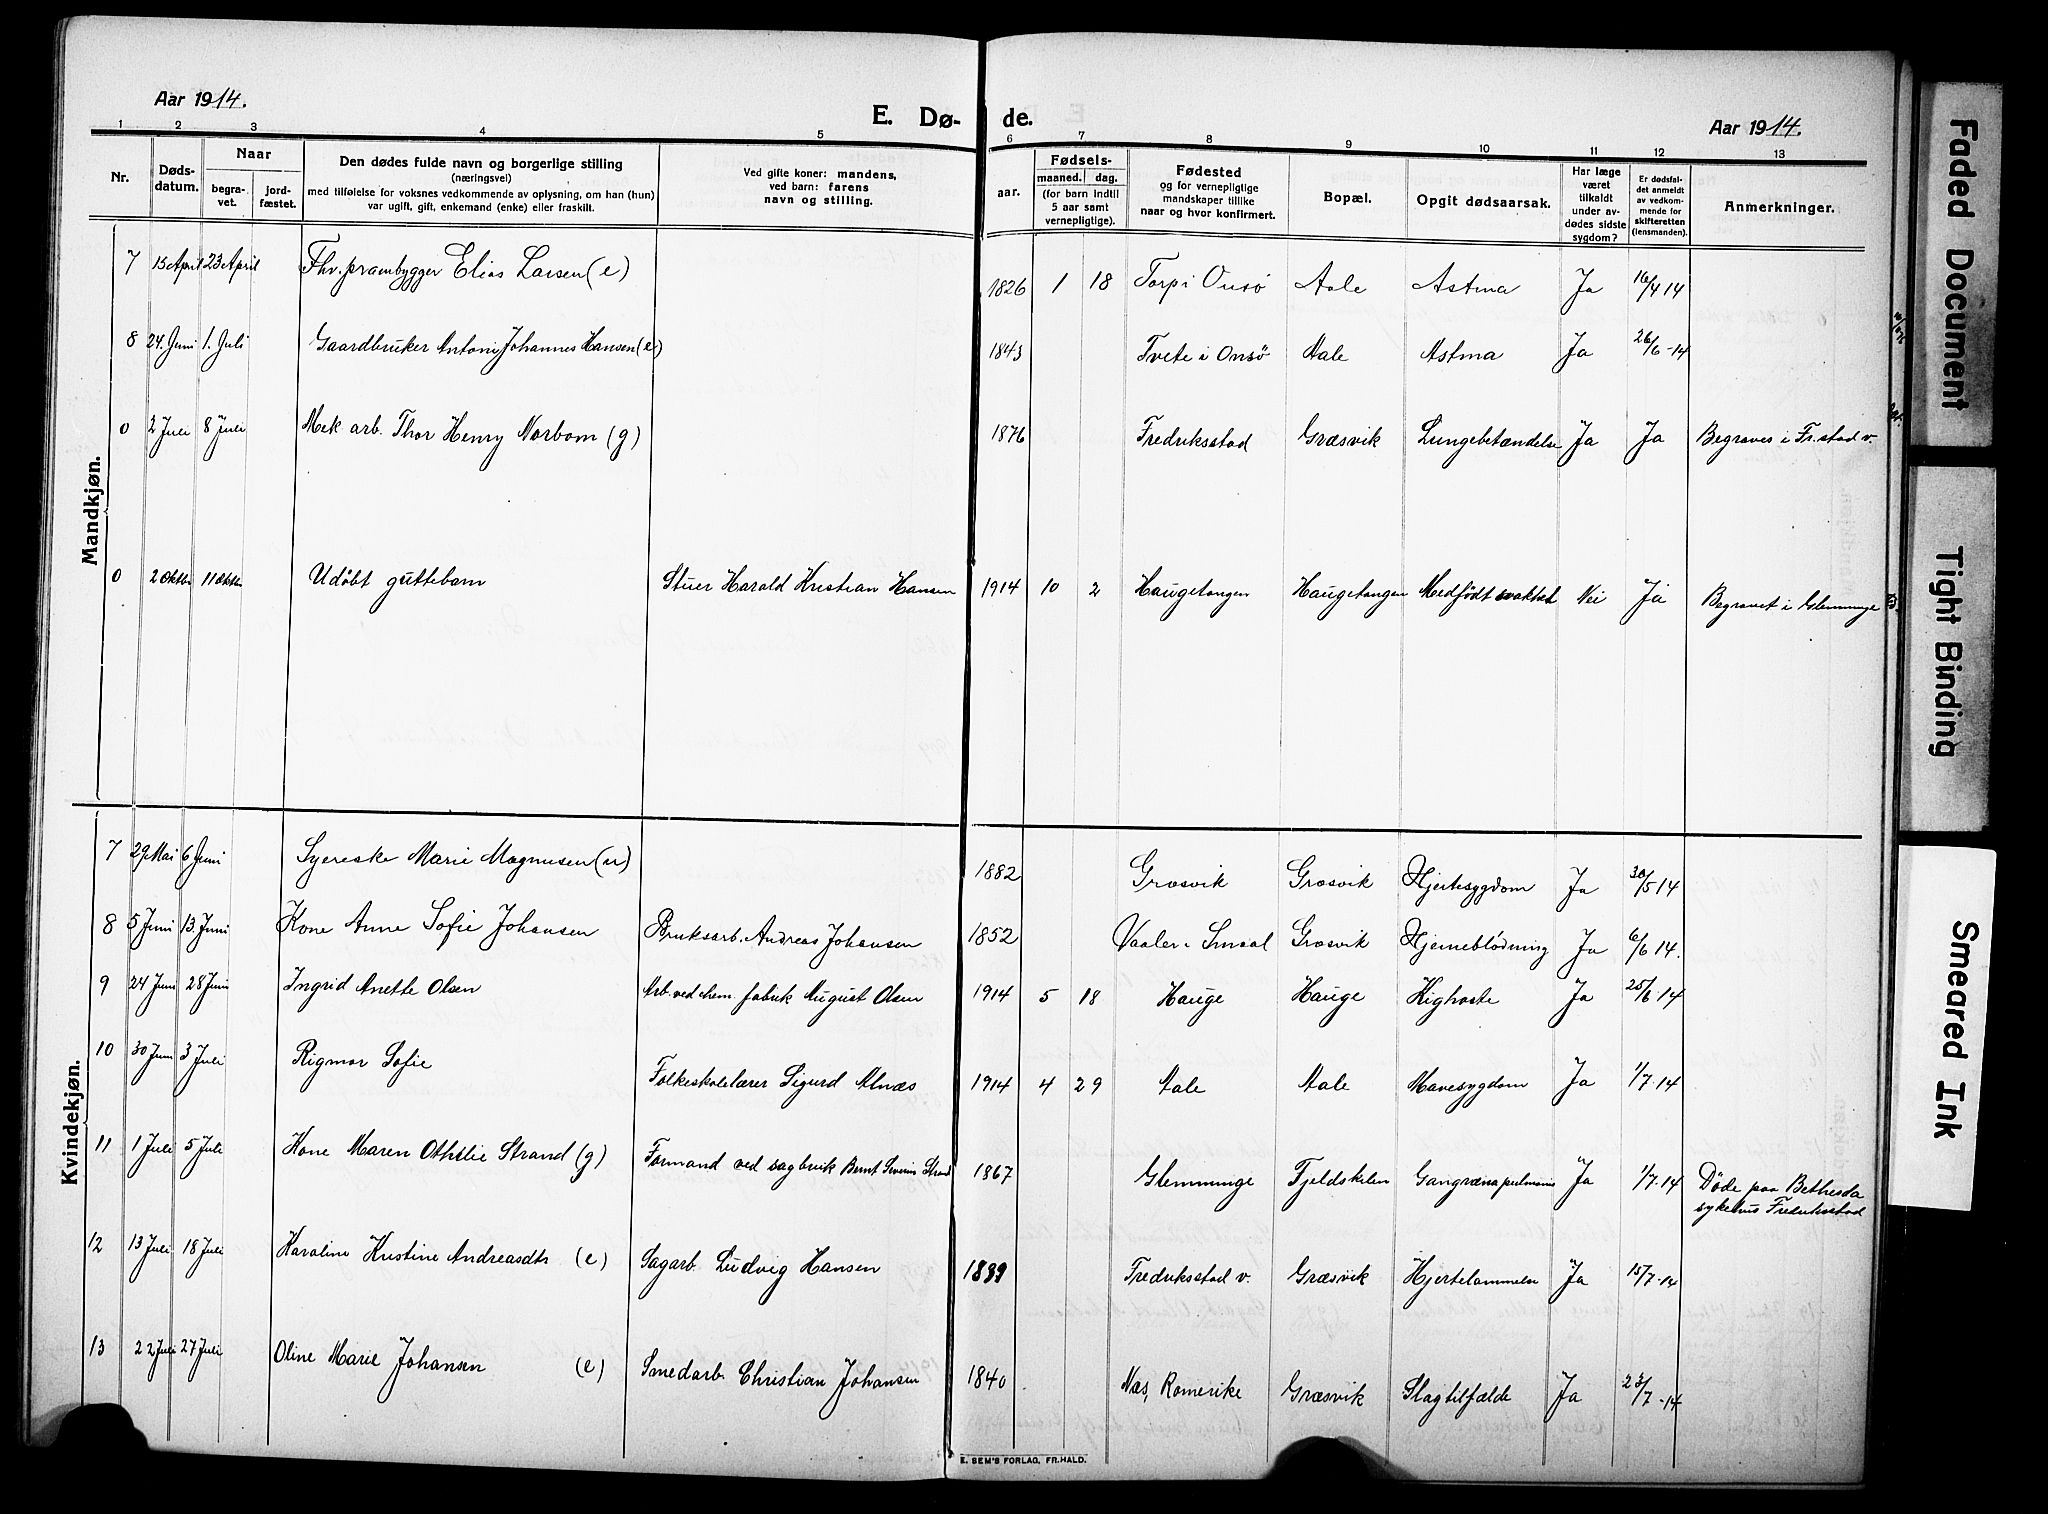 Aar 1914.
E. Dø- de.
Aar 1914.
1 2 3 4 5 6 7 8 9 10 11 12 13
Nr.
Døds-
datum.
Naar
begra-
vet.
jord-
fæstet.
Den dødes fulde navn og borgerlige stilling
(næringsvei)
med tilføielse for voksnes vedkommende av oplysning, om han (hun)
var ugift, gift, enkemand (enke) eller fraskilt.
Ved gifte koner: mandens,
ved barn: farens
navn og stilling.
aar.
Fødsels-
maaned. dag.
(for barn indtil
5 aar samt
vernepligtige).
Fødested
og for vernepligtige
mandskaper tillike
naar og hvor konfirmert.
Bopæl.
Opgit dødsaarsak.
Har læge
været
tilkaldt
under av-
dødes sidste
sygdom?
Er dødsfal-
det anmeldt
av vedkom-
mende for
skifteretten
(lensmanden).
Anmerkninger.
Mandkjøn.
7 15 April 23 April Fhv. prambygger Elias Larsen (e) 1826 1 18 Torp i Onsø Aale Astma Ja 16/4 14
8 24. Juni 1. Juli Gaardbruker Anton Johannes Hansen (e) 1843 Tvete i Onsø Aale Astma Ja 26/6 -14
0 2 Juli 8 Juli Mek arb. Thor Henry Norbom (g) 1876 Fredriksstad Græsvik Lungebetændelse Ja Ja Begraves i Fr.stad v.
0 2 Oktbr 11 Oktbr Udøbt guttebarn Stuer Harald Kristian Hansen 1914 10 2 Haugetangen Haugetangen Medfødt svakhet Nei Ja Begravet i Glemminge
Kvindekjøn.
7 29 Mai 6 Juni Syerske Marie Magnusen (u) 1882 Græsvik Græsvik Hjertesygdom Ja 30/5 14
8 5 Juni 13. Juni Kone Anne Sofie Johansen Bruksarb. Andreas Johansen 1852 Vaaler i Smaal Græsvik Hjerneblødning Ja 6/6 14.
9 24 Juni 28 Juni Ingrid Anette Olsen Arb. ved chem. fabrik August Olsen 1914 5 18 Hauge Hauge Kighoste Ja 25/6 14
10 30 Juni 3 Juli Rigmor Sofie Folkeskolelærer Sigurd Alnæs 1914 4 29 Aale Aale Mavesygdom Ja 1/7 14
11 1 Juli 5 Juli Kone Maren Othilie Strand (g) Formand ved sagbruk Bernt Severin Strand 1867 Glemminge Fjeldskilen Gangræna pulmonis Ja 1/7 14 Døde paa Bethesda
sykehus Fredriksstad
12 13 Juli 18 Juli Karoline Kristine Andreasdtr (e) Sagarb. Ludvig Hansen Fredriksstad v. Græsvik Hjertelammelse Ja 15/7 14
13 22 Juli 27 Juli Oline Marie Johansen (e) Smedarb. Christian Johansen 1840 Næs, Romerike Græsvik Slagtilfælde Ja 23/7 -14
E. SEM'S FORLAG, FR.HALD.
Faded Document
Tight Binding
Smeared Ink